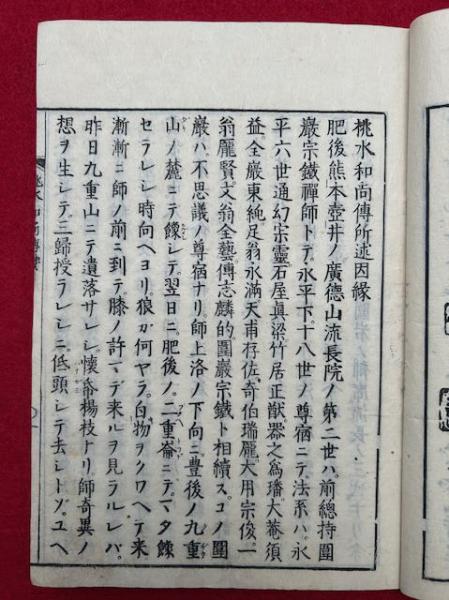 桃水和尚傳所述因縁
肥後熊本壺井ノ廣德山流長院ノ第二世ハ。前總持圍
巖宗鐵禪師トテ。永平下十八世ノ尊宿ニテ。法系ハ。永
平六世通幻宗靈石屋眞梁竹居正猷器之爲璠大菴須
益全巖東純足翁永滿天甫存佐奇伯瑞龐大用宗俊一
翁龐賢丈翁全藝傳志麟的圍巖宗鐵ト相續ス。コノ圍
巖ハ。不思議ノ尊宿ナリ。師上洛ノ下向ニ。豊後ノ九重
山ノ麓ニテ。饡シテ。翌日ニ肥後ノ。二重峯ニテ。マタ饡
セラレシ時。向ヘヨリ。狼カ何ヤラ。白物ヲクワヘテ来
漸漸ニ師ノ前ニ到テ。膝ノ許マデ来ルヲ見ラルレバ。
昨日九重山ニテ遺落サレシ。懷帋楊枝ナリ。師奇異ノ
想ヲ生シテ。三歸授ラレシニ。低頭シテ去シトゾ。ユヘ
桃水和尚傳賛